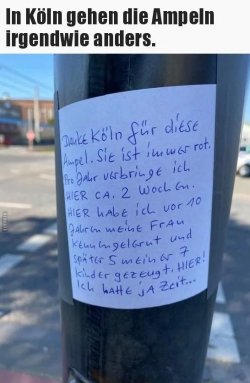 In Köln gehen die Ampeln
irgendwie anders.
Danke Köln für diese
Ampel. Sie ist immer rot.
Pro Jahr verbringe ich
HIER ca. 2 Wochen.
HIER habe ich vor 10
Jahren meine Frau
kennengelernt und
später 5 meiner 7
Kinder gezeugt. HIER!
Ich hatte ja Zeit...